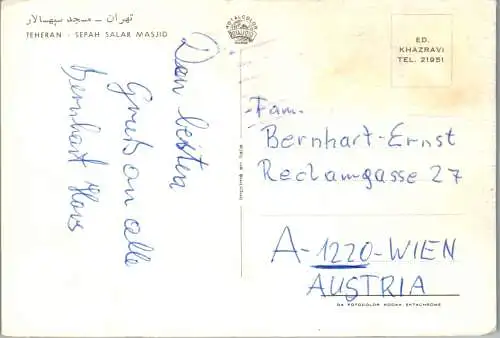 تهران - مسجد سپهسالار
TEHERAN - SEPAH SALAR MASJID
ED.
KHAZRAVI
TEL. 21951
Den besten
Gruß an alle
Bernhart Hans
Fam.
Bernhart-Ernst
Reclamgasse 27
A-1220-WIEN
AUSTRIA
DA FOTOCOLOR KODAK EKTACHROME